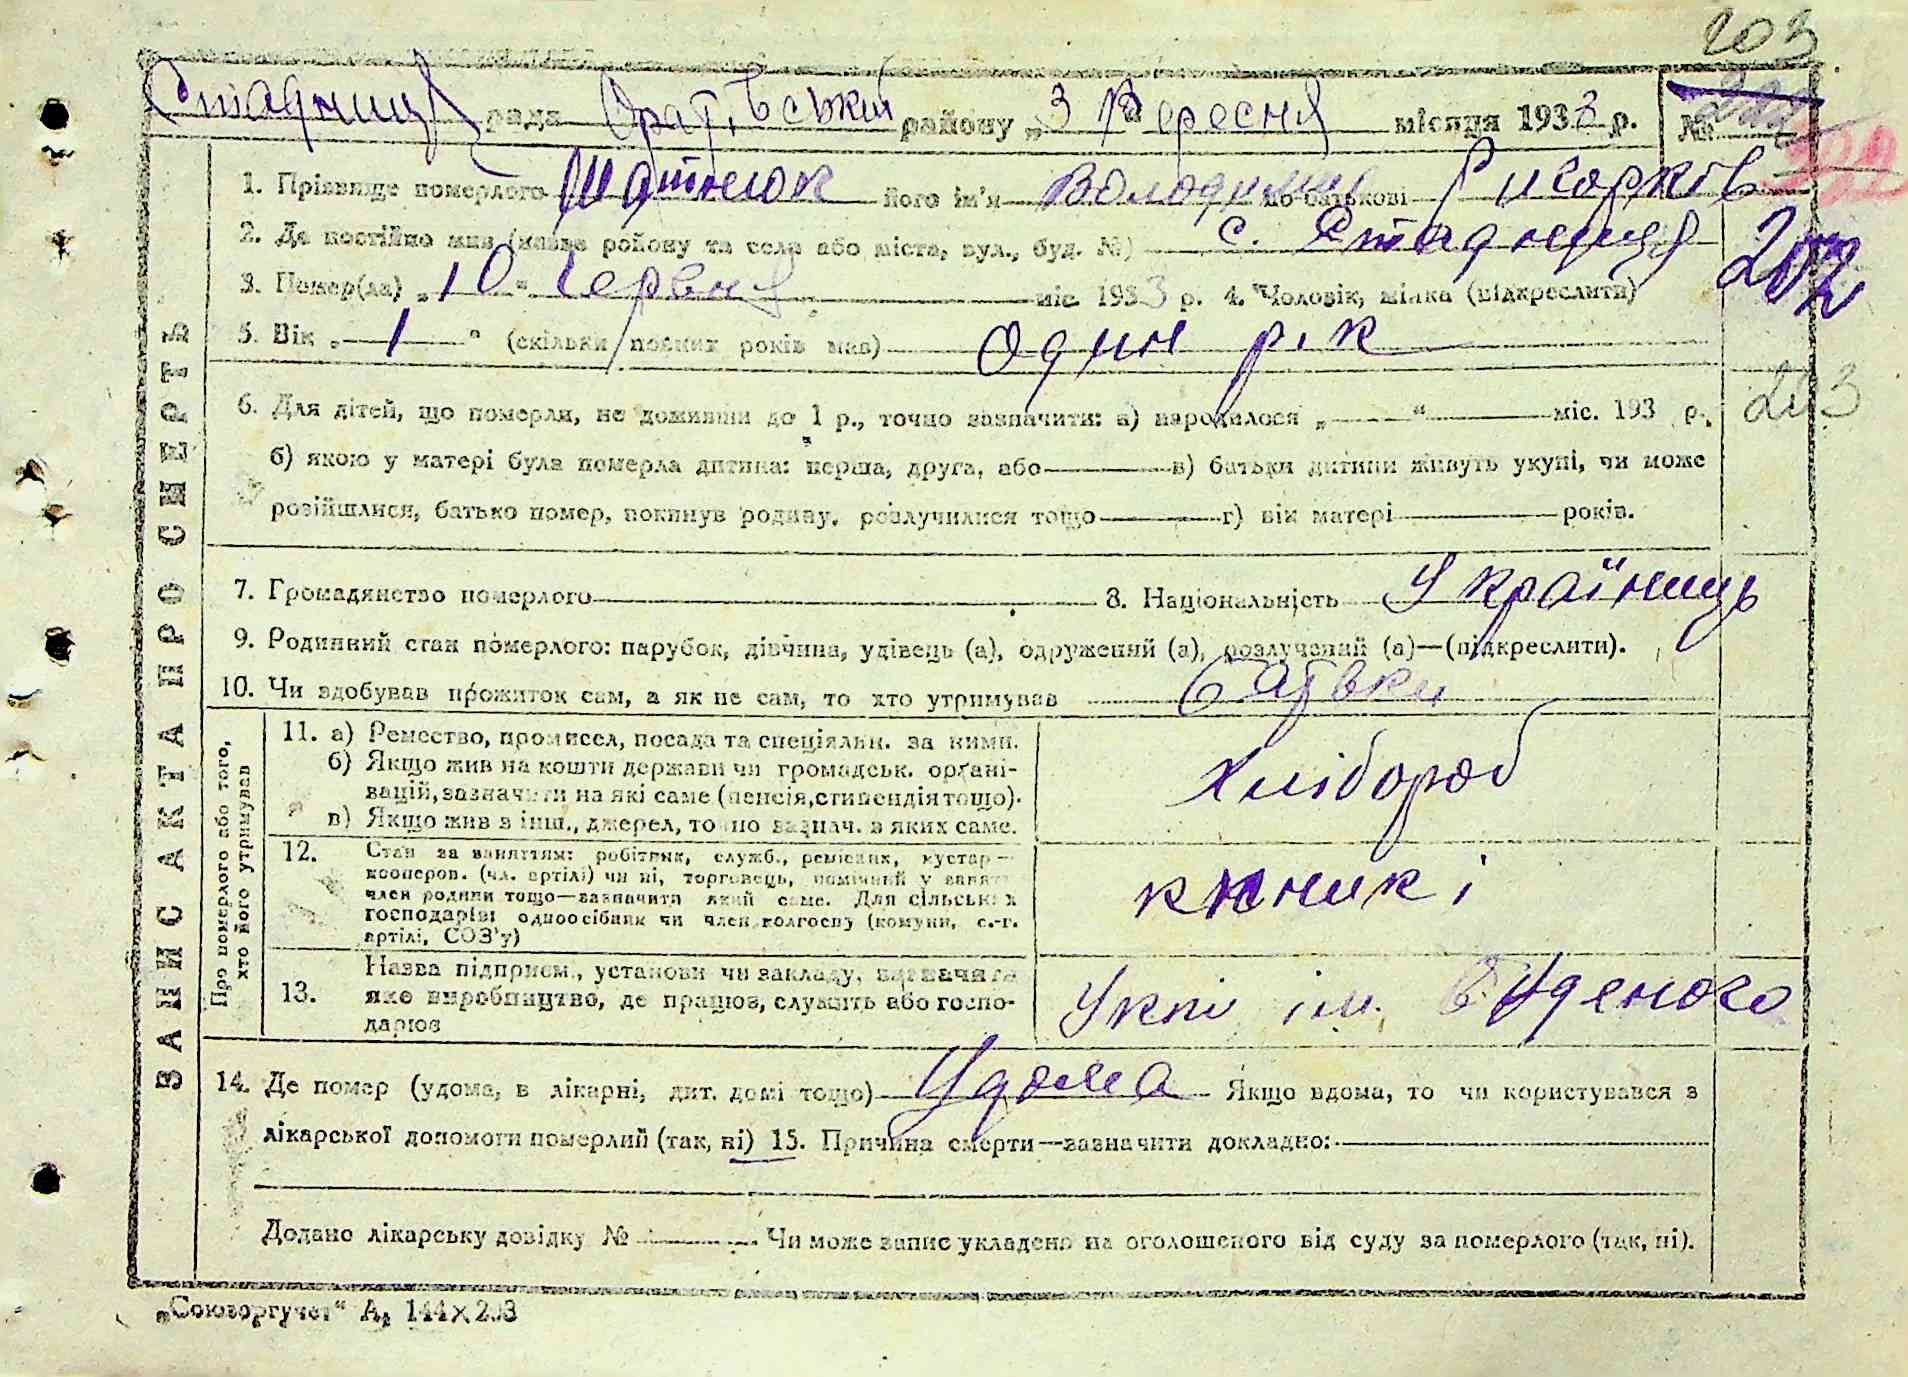 203
Стадниця рада Оратівський району „3" Вересня місяця 1933 р. №
202
1. Прізвище померлого його ім'я Володимир по батькові
2. Де постійно жив (назва району та села або міста, вул., буд. №) с. Стадниця
202
3. Помер(ла) „10" Червня міс. 1933 р. 4. Чоловік, жінка (підкреслити)
5. Вік „1" (скільки повних років мав) Один рік
6. Для дітей, що померли, не доживши до 1 р., точно зазначити: а) народилося „—" — міс. 193 р.
203
б) якою у матері була померла дитина: перша, друга, або — в) батьки дитини живуть укупі, чи може
розійшлися, батько помер, покинув родину, розлучилися тощо — г) вік матері — років.
7. Громадянство померлого — 8. Національність Українець
9. Родинний стан померлого: парубок, дівчина, удівець (а), одружений (а), розлучений (а)—(підкреслити).
10. Чи здобував прожиток сам, а як не сам, то хто утримував батьки
ЗАПИС АКТА ПРО СМЕРТЬ
Про померлого або того, хто його утримував
11. а) Ремество, промисел, посада та спеціяльн. за ними.
б) Якщо жив на кошти держави чи громадськ. органі-
зацій, зазначити на які саме (пенсія, стипендія тощо).
в) Якщо жив з інш., джерел, точно зазнач. з яких саме.
Хлібороб
12. Стан за заняттям: робітник, служб., ремісник, кустар—
кооперов. (чл. артілі) чи ні, торговець, помічний у занятт.
член родини тощо—зазначити який саме. Для сільських
господарів: одноосібник чи член колгоспу (комуни, с.-г.
артілі, СОЗ'у)
13. Назва підприєм., установи чи закладу, зазначити
яке виробництво, де працює, служить або госпо-
дарює
ім. Буденого
14. Де помер (удома, в лікарні, дит. домі тощо) Удома Якщо вдома, то чи користувався з
лікарської допомоги померлий (так, ні) 15. Причина смерти—зазначити докладно:
Додано лікарську довідку № — Чи може запис укладено на оголошеного від суду за померлого (так, ні).
„Союзоргучет" А₅ 144×203